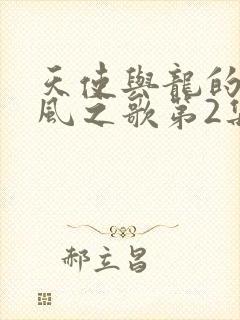 天使與龍的
風之歌第2集
郝立昌